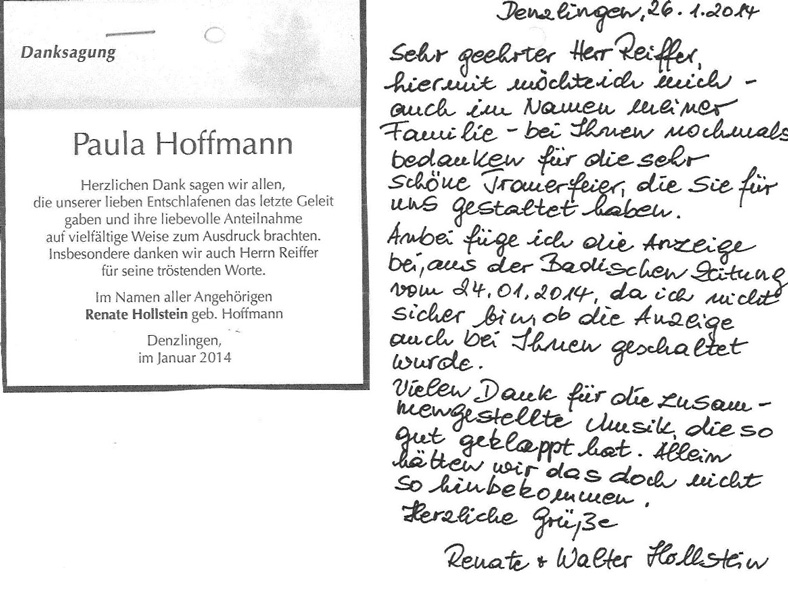 Danksagung
Paula Hoffmann
Herzlichen Dank sagen wir allen,
die unserer lieben Entschlafenen das letzte Geleit
gaben und ihre liebevolle Anteilnahme
auf vielfältige Weise zum Ausdruck brachten.
Insbesondere danken wir auch Herrn Reiffer
für seine tröstenden Worte.
Im Namen aller Angehörigen
Renate Hollstein geb. Hoffmann
Denzlingen,
im Januar 2014
Denzlingen, 26.1.2014
Sehr geehrter Herr Reiffer,
hiermit möchte ich mich -
auch im Namen meiner
Familie - bei Ihnen nochmals
bedanken für die sehr
schöne Trauerfeier, die Sie für
uns gestaltet haben.
Anbei füge ich die Anzeige
bei, aus der Badischen Zeitung
vom 24.01.2014, da ich nicht
sicher bin, ob die Anzeige
auch bei Ihnen geschaltet
wurde.
Vielen Dank für die zusam-
mengestellte Musik, die so
gut geklappt hat. Allein
hätten wir das doch nicht
so hinbekommen.
Herzliche Grüße
Renate + Walter Hollstein